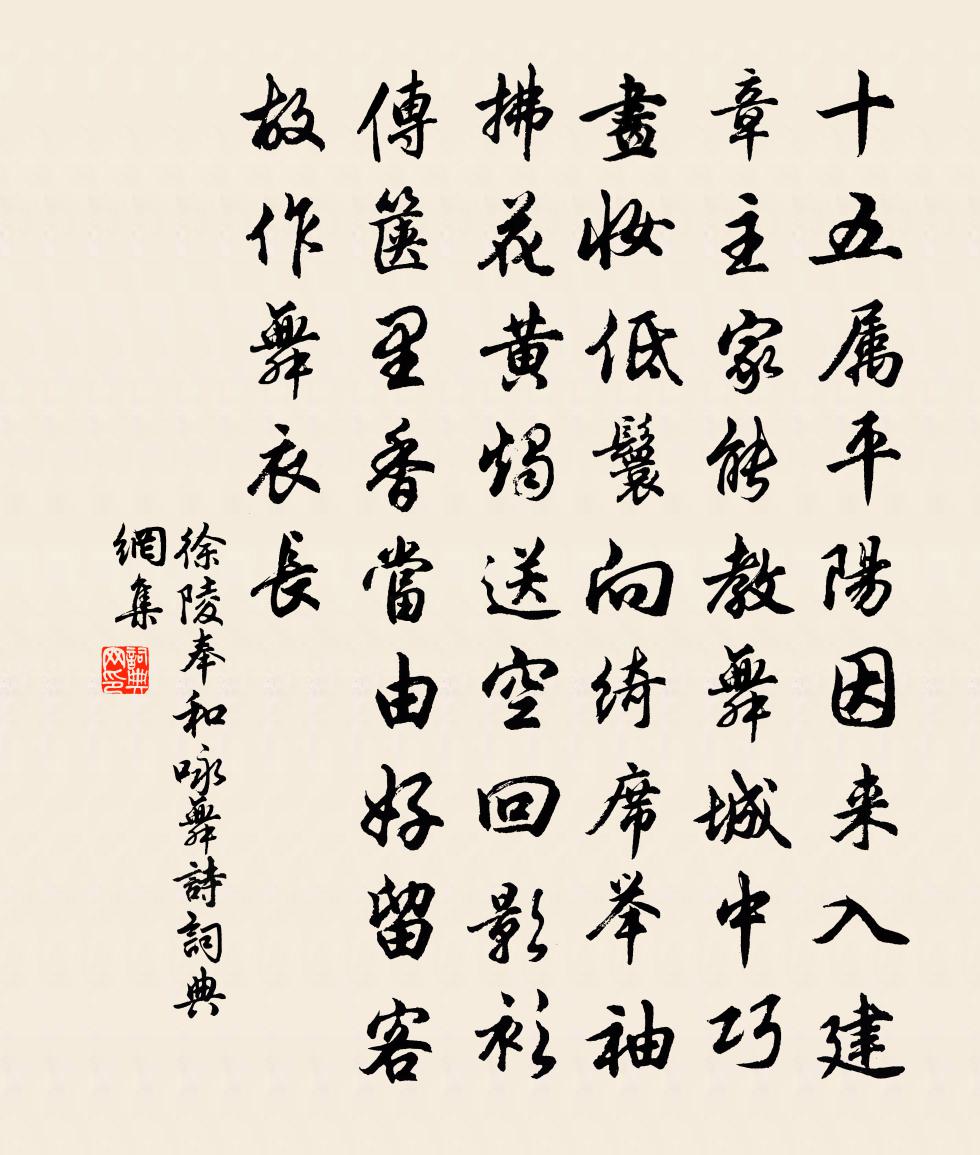 十五属平陽因来入建
章主家能教舞城中巧
畫妝低鬟向綺席举袖
拂花黄燭送空回影衫
傳篋里香當由好留客
故作舞衣長
徐陵奉和咏舞詩詞典
網集
詞典
网印